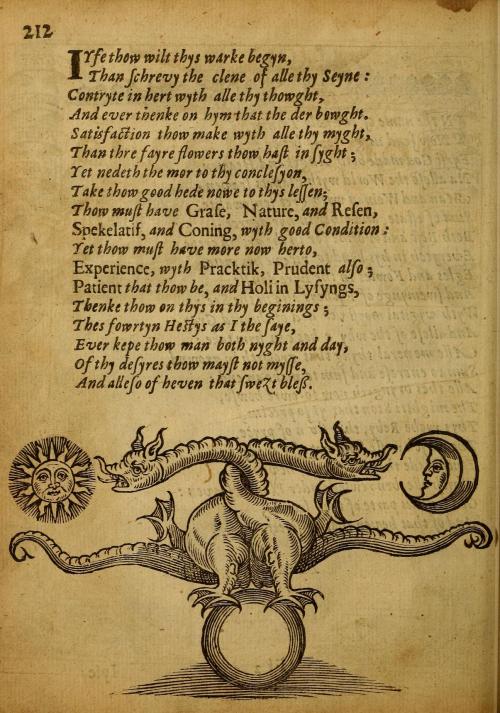 212
IYfe thow wilt thys warke begyn,
Than schrevy the clene of alle thy Seyne :
Contryte in hert wyth alle thy thowght,
And ever thenke on hym that the der bowght.
Satisfaction thow make wyth alle thy myght,
Than thre fayre flowers thow hast in syght ;
Yet nedeth the mor to thy conclesyon,
Take thow good hede nowe to thys lessen;
Thow must have Grase, Nature, and Resen,
Spekelatif, and Coning, wyth good Condition :
Yet thow must have more now herto,
Experience, wyth Pracktik, Prudent also ;
Patient that thow be, and Holi in Lyfyngs,
Thenke thow on thys in thy beginings ;
Thes fowrtyn Hestys as I the saye,
Ever kepe thow man both nyght and day,
Of thy desyres thow mayst not mysse,
And alleso of heven that sweʒt bless.